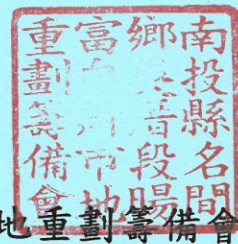 南投縣名間
鄉段陽
富市地
重劃籌備會
地重劃籌備會